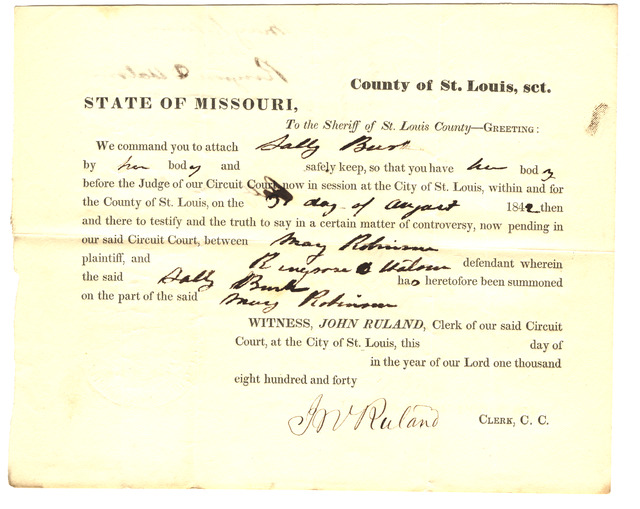 County of St. Louis, sct.
STATE OF MISSOURI,
To the Sheriff of St. Louis County—GREETING:
We command you to attach Sally Burk
by her body and safely keep, so that you have her body
before the Judge of our Circuit Court, now in session at the City of St. Louis, within and for
the County of St. Louis, on the day of August 1842 then
and there to testify and the truth to say in a certain matter of controversy, now pending in
our said Circuit Court, between Mary Robinson
plaintiff, and Ringrose D Watson defendant wherein
the said Sally Burk has heretofore been summoned
on the part of the said Mary Robinson
WITNESS, JOHN RULAND, Clerk of our said Circuit
Court, at the City of St. Louis, this day of
in the year of our Lord one thousand
eight hundred and forty
Jno Ruland CLERK, C. C.